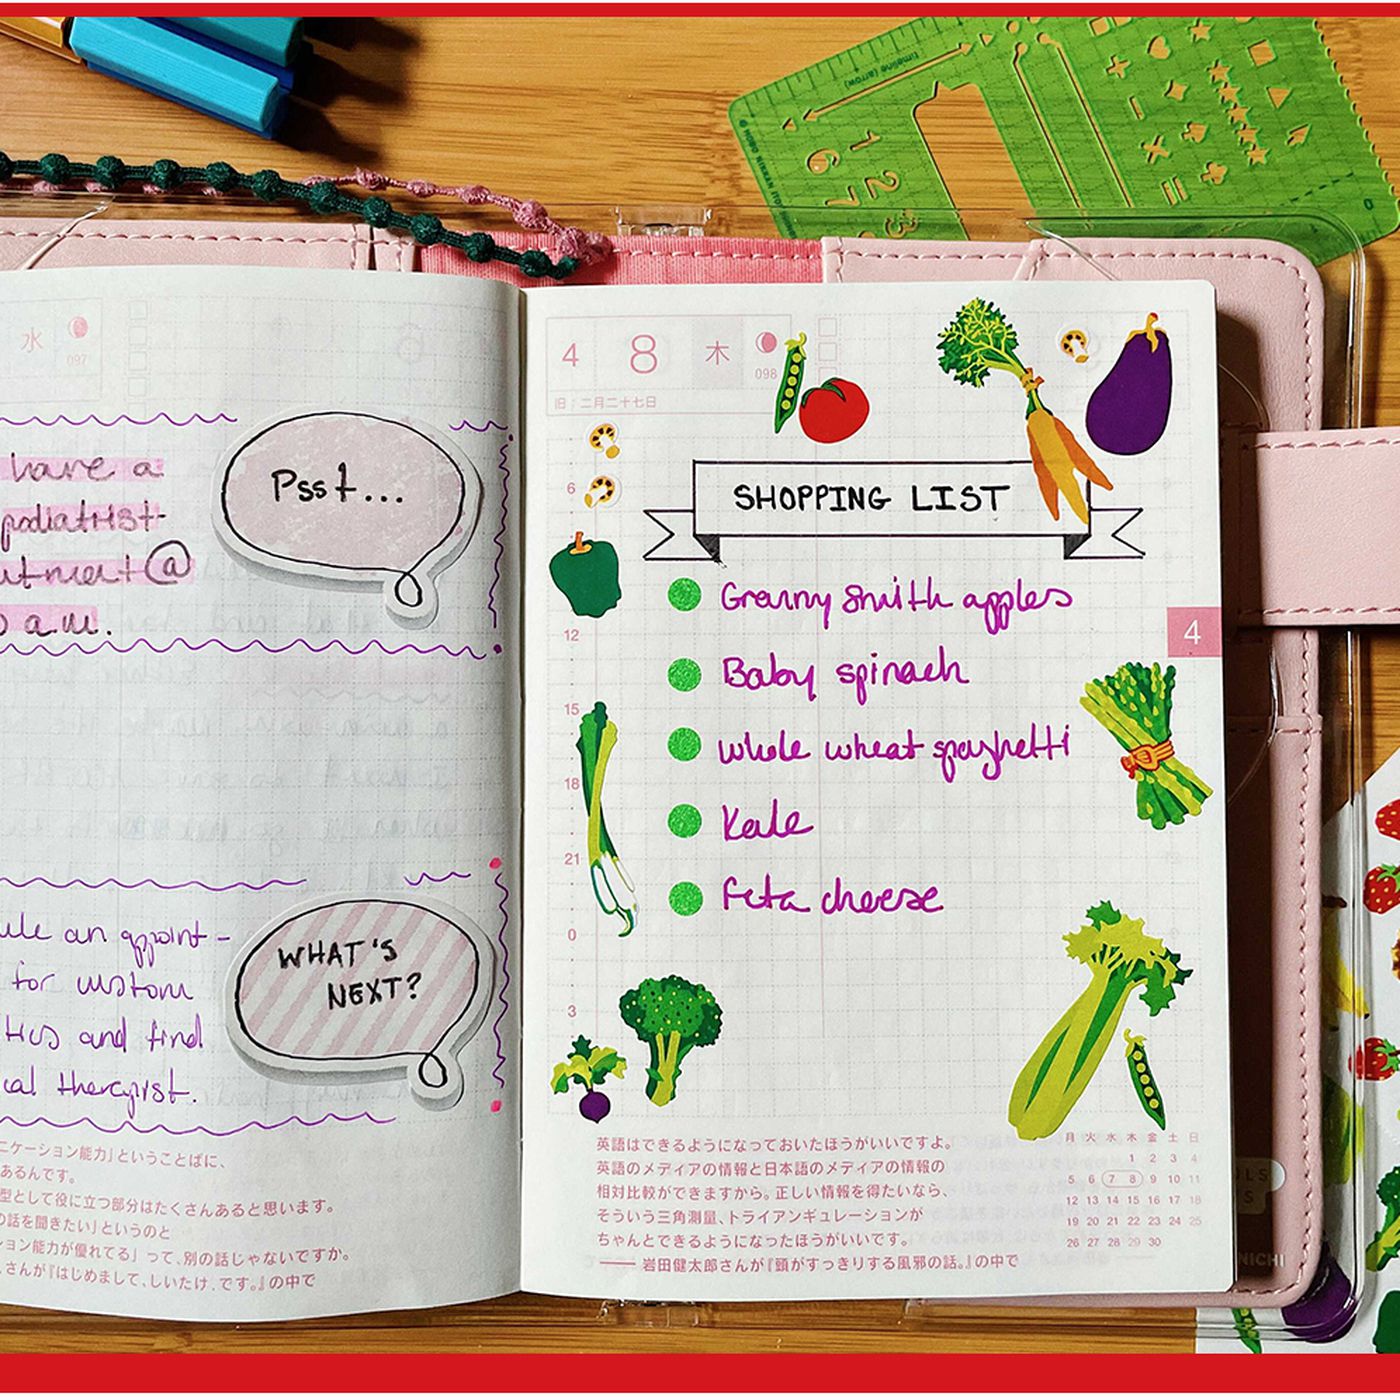 timeline (arrow)
1
6 2
7 3
水
097
have a
podiatrist
@
a.m.
Psst...
an appoint-
for custom
and find
therapist.
WHAT'S
NEXT?
ニケーション能力」ということばに、
あるんです。
型として役に立つ部分はたくさんあると思います。
の話を聞きたい」というのと
ション能力が優れてる」 って、別の話じゃないですか。
さんが『はじめまして、しいたけ.です。』の中で
4 8 木
098
旧:二月二十七日
6
12
15
18
21
0
3
SHOPPING LIST
Granny Smith apples
Baby spinach
Whole wheat spaghetti
Kale
Feta cheese
4
英語はできるようになっておいたほうがいいですよ。
英語のメディアの情報と日本語のメディアの情報の
相対比較ができますから。正しい情報を得たいなら、
そういう三角測量、トライアンギュレーションが
ちゃんとできるようになったほうがいいです。
── 岩田健太郎さんが『頭がすっきりする風邪の話。』の中で
月 火 水 木 金 土 日
1 2 3 4
5 6 7 8 9 10 11
12 13 14 15 16 17 18
19 20 21 22 23 24 25
26 27 28 29 30
NICHI